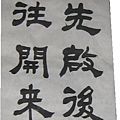 先啟後
往開来